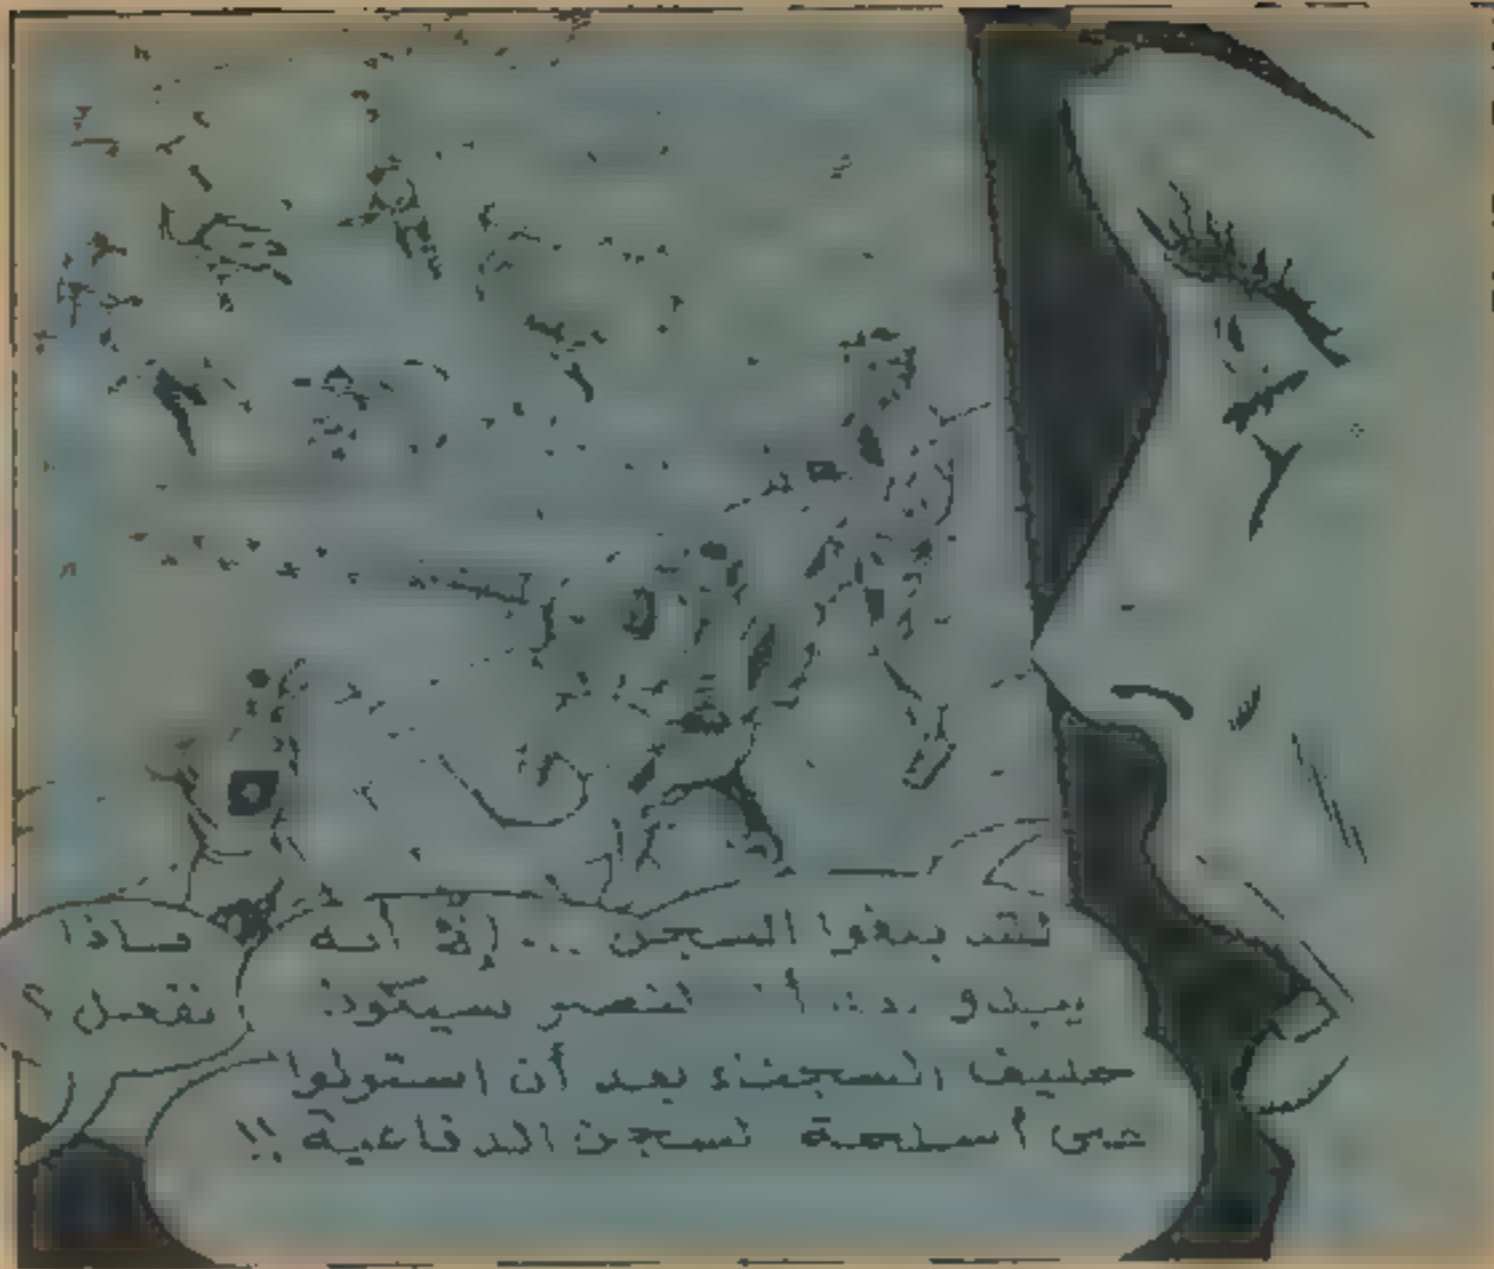 لقد بلغوا السجن ... إلا أنه
يبدو .. أن النصر سيكون
حليف السجناء بعد أن استولوا
على أسلحة السجن الدفاعية !!
ماذا
نفعل ؟